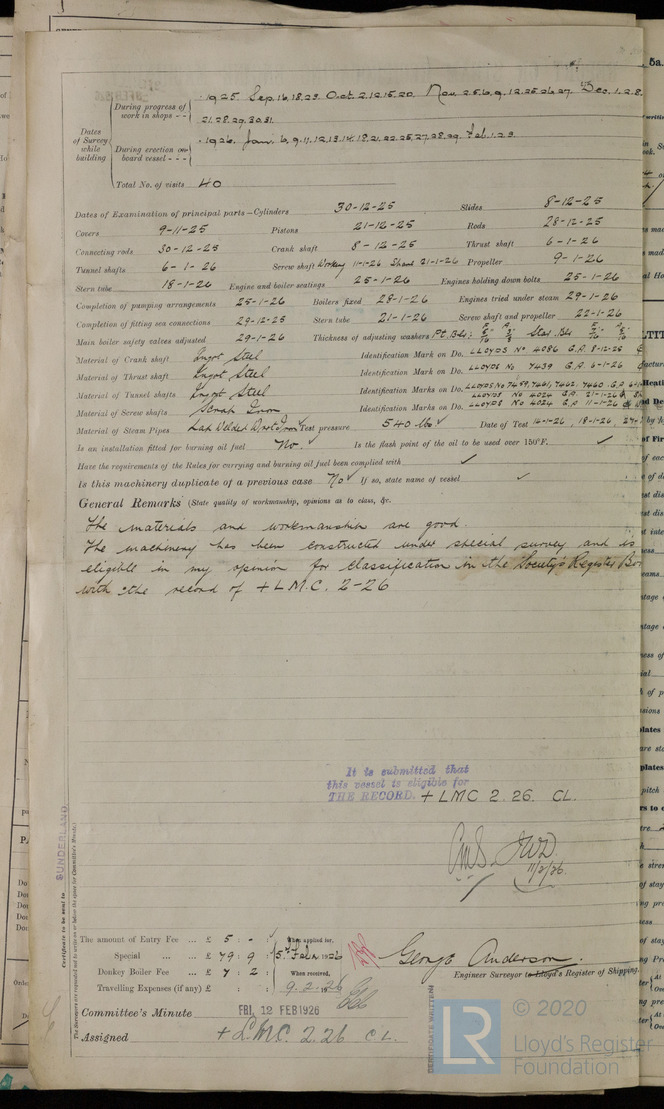 1925. Sep. 16.18.23. Oct. 2.12.15.20. Nov. 2.5.6.9.12.25.26.27. Dec. 1.2.8.
During progress of work in shops - -
21.28.29.30.31.
Dates of Survey while building
During erection on board vessel - - -
1926. Jan. 6.9.11.12.13.14.18.21.22.25.27.28.29. Feb. 1.2.3.
Total No. of visits 40
Dates of Examination of principal parts—Cylinders 30-12-25 Slides 8-12-25
Covers 9-11-25 Pistons 21-12-25 Rods 28-12-25
Connecting rods 30-12-25 Crank shaft 8-12-25 Thrust shaft 6-1-26
Tunnel shafts 6-1-26 Screw shaft Working 11-1-26 Spare 21-1-26 Propeller 9-1-26
Stern tube 18-1-26 Engine and boiler seatings 25-1-26 Engines holding down bolts 25-1-26
Completion of pumping arrangements 25-1-26 Boilers fixed 28-1-26 Engines tried under steam 29-1-26
Completion of fitting sea connections 29-12-25 Stern tube 21-1-26 Screw shaft and propeller 22-1-26
Main boiler safety valves adjusted 29-1-26 Thickness of adjusting washers Pt. Blr: F 5/16 A 3/8 Star. Blr
Material of Crank shaft Ingot Steel Identification Mark on Do. LLOYDS No 4086 G.A. 8-12-25
Material of Thrust shaft Ingot Steel Identification Mark on Do. LLOYDS No 7439 G.A. 6-1-26
Material of Tunnel shafts Ingot Steel Identification Marks on Do. LLOYDS No 7459, 7461, 7462, 7460 G.A.
LLOYDS No 4024 G.A. 21-1-26
Material of Screw shafts Scrap Iron Identification Marks on Do. LLOYDS No 4024 G.A. 11-1-26
Material of Steam Pipes Lap Welded Wrot Iron Test pressure 540 lbs Date of Test 14-1-26, 18-1-26
Is an installation fitted for burning oil fuel No. Is the flash point of the oil to be used over 150°F. ✓
Have the requirements of the Rules for carrying and burning oil fuel been complied with ✓
Is this machinery duplicate of a previous case No ✓ If so, state name of vessel ✓
General Remarks (State quality of workmanship, opinions as to class, &c.
The materials and workmanship are good.
The machinery has been constructed under special survey and is
eligible in my opinion for classification in the Society's Register
with the record of + L.M.C. 2-26
It is submitted that
this vessel is eligible for
THE RECORD. + LMC 2.26. CL.
11/2/26
SUNDERLAND
Certificate to be sent to
The amount of Entry Fee ... £ 5 : - : When applied for,
Special ... £ 79 : 9 : 5th Feb. 1926
Donkey Boiler Fee ... £ 7 : 2 : When received,
Travelling Expenses (if any) £ : : 9.2.26
George Anderson.
Engineer Surveyor to Lloyd's Register of Shipping.
Committee's Minute FRI. 12 FEB 1926
Assigned + L.M.C. 2.26 C.L.
CERTIFICATE WRITTEN
LR © 2020
Lloyd's Register
Foundation